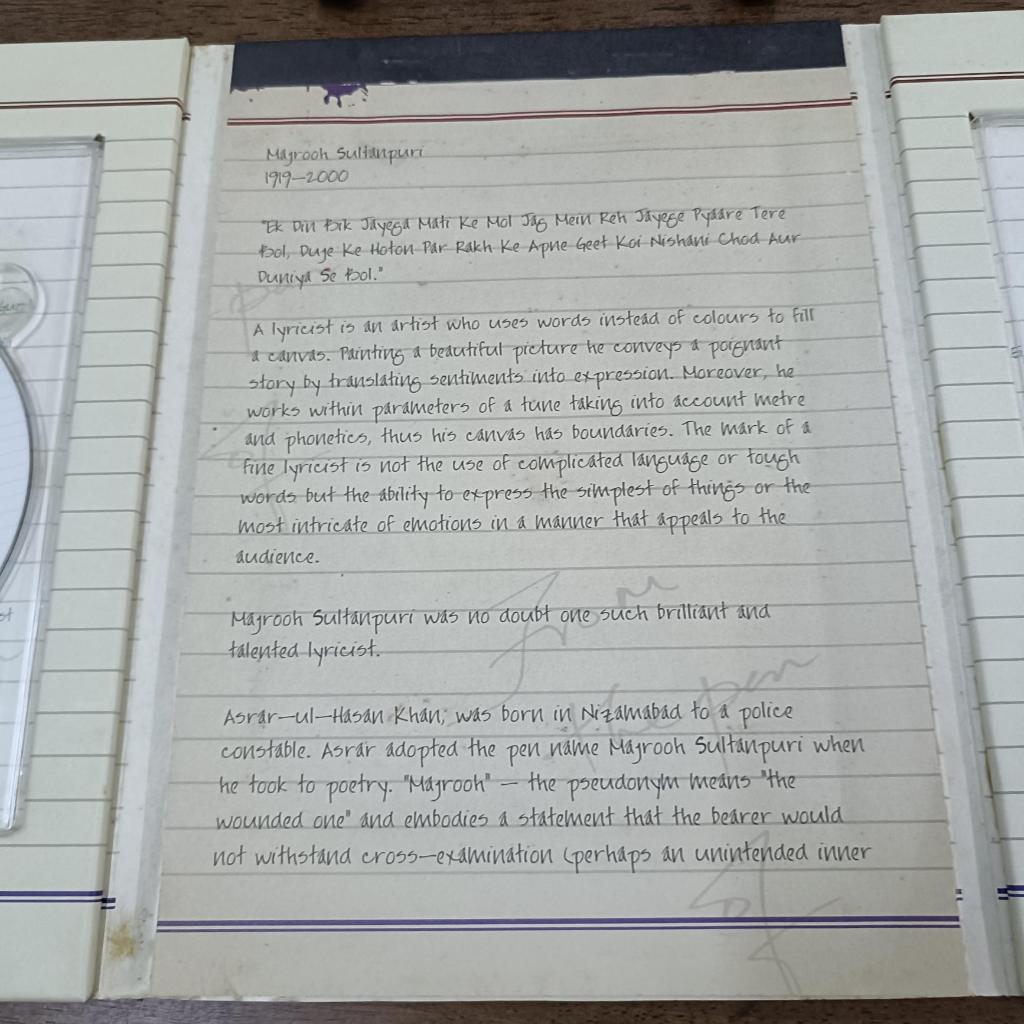 Majrooh Sultanpuri
1919–2000
"Ek Din Bik Jayega Mati Ke Mol Jag Mein Reh Jayege Pyaare Tere
Bol, Duje Ke Hoton Par Rakh Ke Apne Geet Koi Nishani Chod Aur
Duniya Se Bol."
A lyricist is an artist who uses words instead of colours to fill
a canvas. Painting a beautiful picture he conveys a poignant
story by translating sentiments into expression. Moreover, he
works within parameters of a tune taking into account metre
and phonetics, thus his canvas has boundaries. The mark of a
fine lyricist is not the use of complicated language or tough
words but the ability to express the simplest of things or the
most intricate of emotions in a manner that appeals to the
audience.
From
Majrooh Sultanpuri was no doubt one such brilliant and
talented lyricist.
the pen
Asrar–ul–Hasan Khan, was born in Nizamabad to a police
constable. Asrar adopted the pen name Majrooh Sultanpuri when
he took to poetry. "Majrooh" – the pseudonym means "the
wounded one" and embodies a statement that the bearer would
not withstand cross–examination (perhaps an unintended inner
of